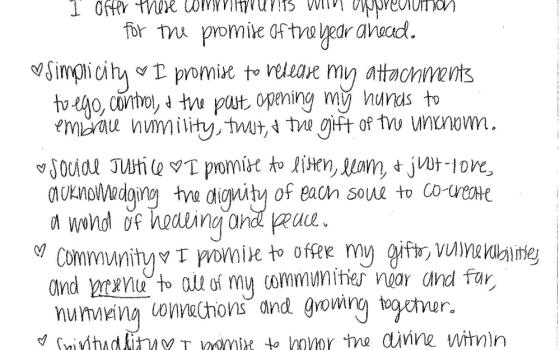 I offer these commitments with appreciation
for the promise of the year ahead.
♡ Simplicity ♡ I promise to release my attachments
to ego, control, & the past, opening my hands to
embrace humility, trust, & the gift of the unknown.
♡ Social Justice ♡ I promise to listen, learn, & just-love,
acknowledging the dignity of each soul to co-create
a world of healing and peace.
♡ Community ♡ I promise to offer my gifts, vulnerabilities,
and presence to all of my communities near and far,
nurturing connections and growing together.
♡ Spirituality ♡ I promise to honor the divine within